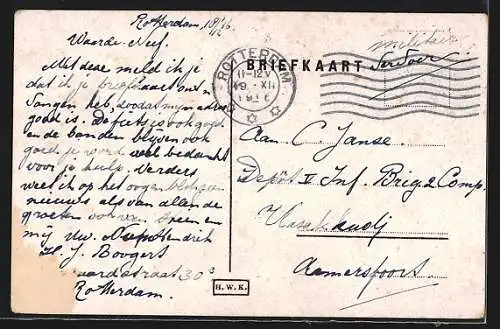 Rotterdam, 18/12 16
Waarde Neef.
Met deze meld ik je
dat ik je briefkaart
ontvangen heb, zoodat mijn adres
goed is. De fiets is ook goed
en de banden blijven ook
goed, je word wel bedankt
voor je hulp. Verders
weet ik op het oogenblik geen
nieuws als van allen de
groeten ook van Sien en
mij Uw. Neef Hendrik
H. J. Boogers
straat 30
Rotterdam.
ROTTERDAM
11-12V
19 XII
191
BRIEFKAART
militair
Aan C. Janse.
Depôt II Inf. Brig 2 Comp.
Amersfoort.
H.W.K.